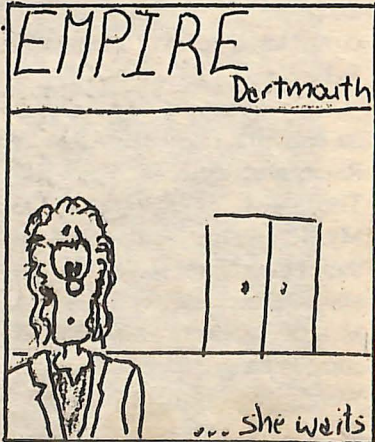 EMPIRE
Dartmouth
... she waits